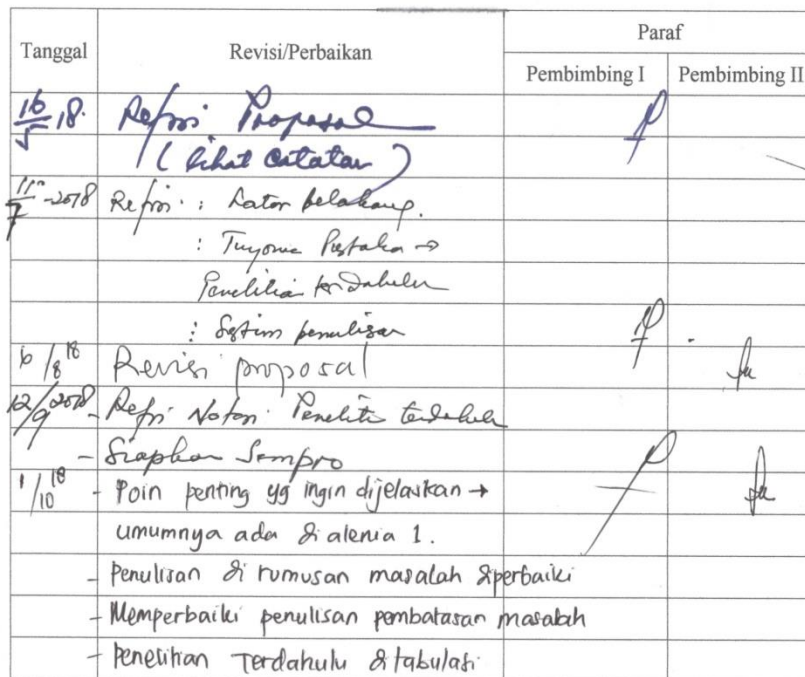 Paraf
Tanggal Revisi/Perbaikan
Pembimbing I Pembimbing II
16/5 18. Refisi Proposal
(lihat catatan)
11/7-2018 Refisi : Latar belakang.
: Tinjauan Pustaka →
Penelitian terdahulu
: Sistim penulisan
6/8 18 Revisi proposal
12/9 2018 - Refisi Peneliti terdahulu
- Siapkan Sempro
1/10 18 - Poin penting yg ingin dijelaskan →
umumnya ada di alenia 1.
- Penulisan di rumusan masalah diperbaiki
- Memperbaiki penulisan pembatasan masalah
- Penelitian Terdahulu di tabulasi